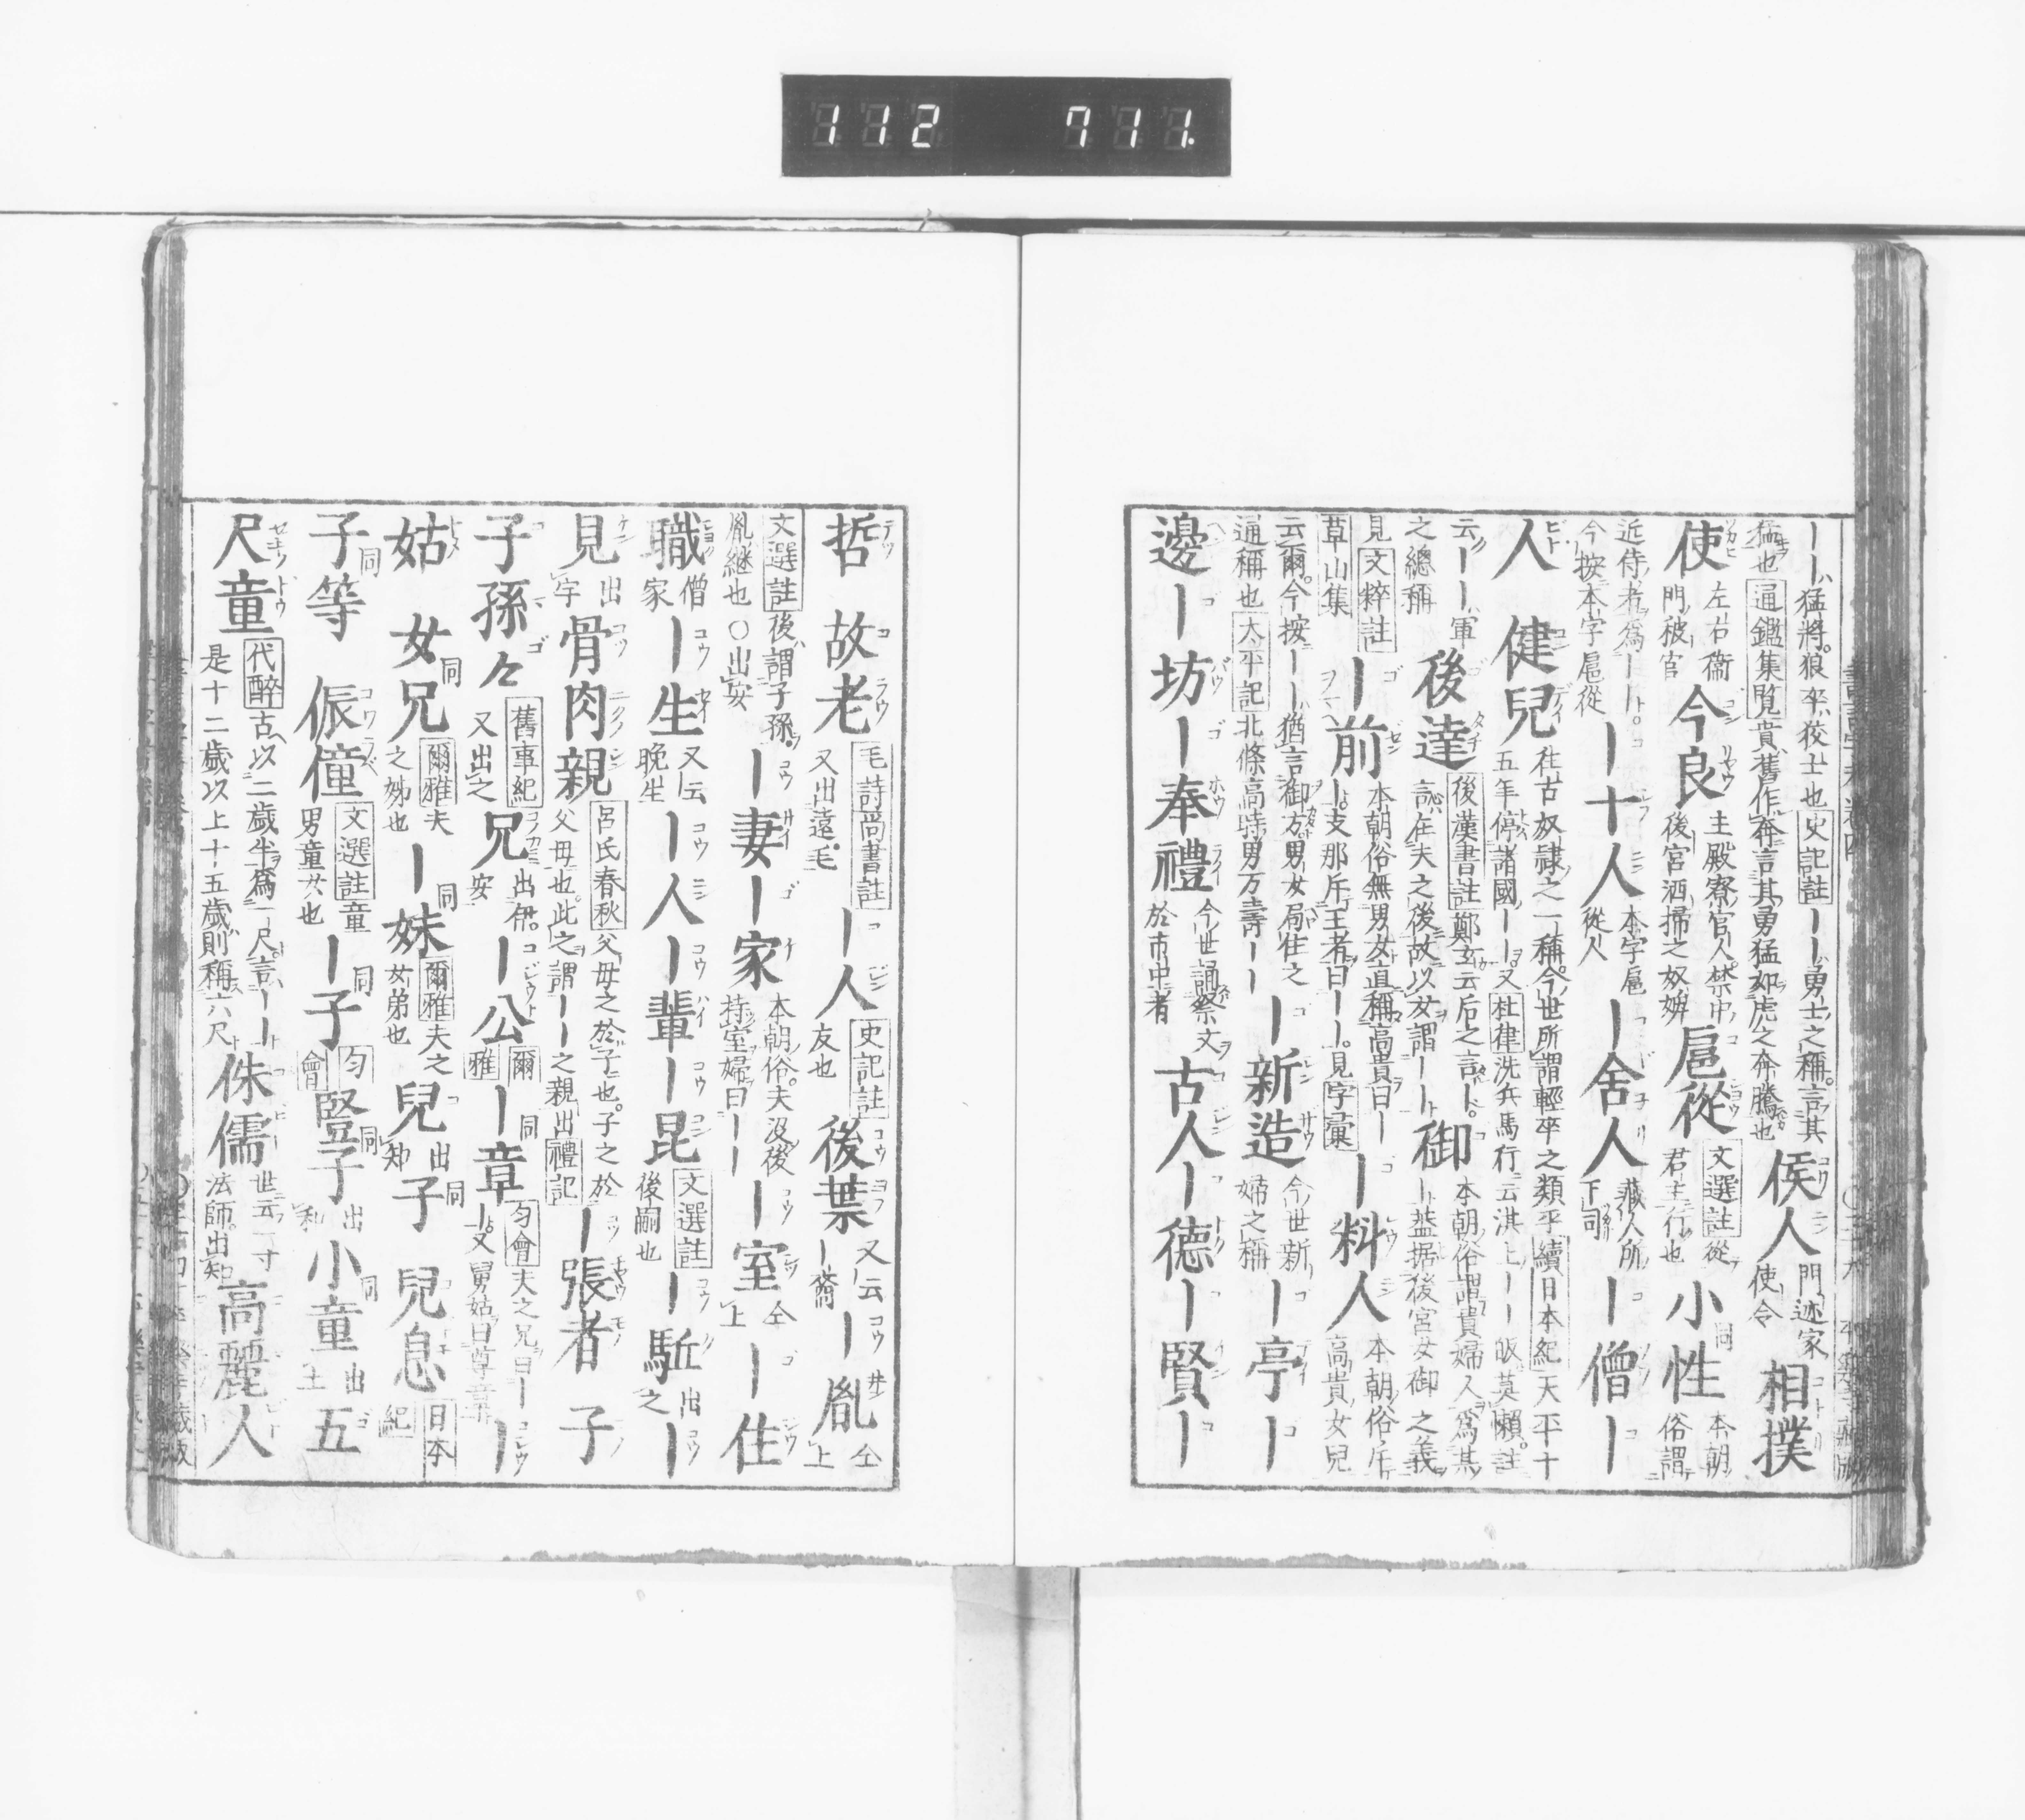 112 711.
｜｜猛將。狼卒、狡士也史記註｜｜勇士之稱。言其
猛也通鑑集覽賁舊作奔言其勇猛如虎之奔騰也 侯人門迹家使令 相撲
使左右衞門被官 今良主殿寮官人。禁中後宮洒掃之奴婢 扈從文選註從君主行也 小性同本朝俗謂
近侍者爲｜｜。今按本字扈從 ｜十人本字扈從人 ｜舍人藏人所下司 ｜僧｜
人 健兒往古奴隷之一稱。今世所謂輕卒之類乎續日本紀天平十五年停諸國｜｜。又杜律洗兵馬行云淇上｜｜皈莫懶。註
云｜｜軍之總稱 後達後漢書註鄭玄云后之言｜。言在夫之後故以女謂｜｜ 御｜本朝俗謂貴婦人爲其｜蓋据後宮女御之義
見文粹註草山集 ｜前本朝俗無男女直稱高貴曰｜｜支那斥王者曰｜｜。見字彙 ｜料人本朝俗斥高貴女兒
云爾。今按｜｜猶言御方。男女局住之通稱也太平記北條高時男万壽｜｜ ｜新造今世新婦之稱 ｜亭｜
邊｜坊｜奉禮今世誦祭文於市中者 古人｜德｜賢｜
哲 故老毛詩尚書註又出遠毛 ｜人史記註友也 後葉又云｜裔 ｜胤仝上
文選註後謂子孫。胤継也○出安 ｜妻｜家本朝俗。夫沒後持室婦曰｜｜ ｜室仝上 ｜住
職僧家 ｜生又云晩生 ｜人｜輩｜昆文選註後嗣也 ｜駈出之 ｜
見出宇 骨肉親呂氏春秋父母之於子也。子之於父母也。此之謂｜｜之親出禮記 ｜張者 子
子孫々舊事紀又出之 兄出伊。安 ｜公爾雅 ｜章同匀會夫之兄曰｜｜又舅姑曰尊章 ｜
姑 女兄同爾雅夫之姊也 ｜妹同爾雅夫之女弟也 兒出知 子同 兒息日本紀
子等同 侲僮文選註童男童女也 ｜子同匀會 豎子同出利 小童同出土 五
尺童代醉古以二歲半爲一尺。言｜｜是十二歲以上十五歲則稱六尺 侏儒世云一寸法師。出知 高麗人